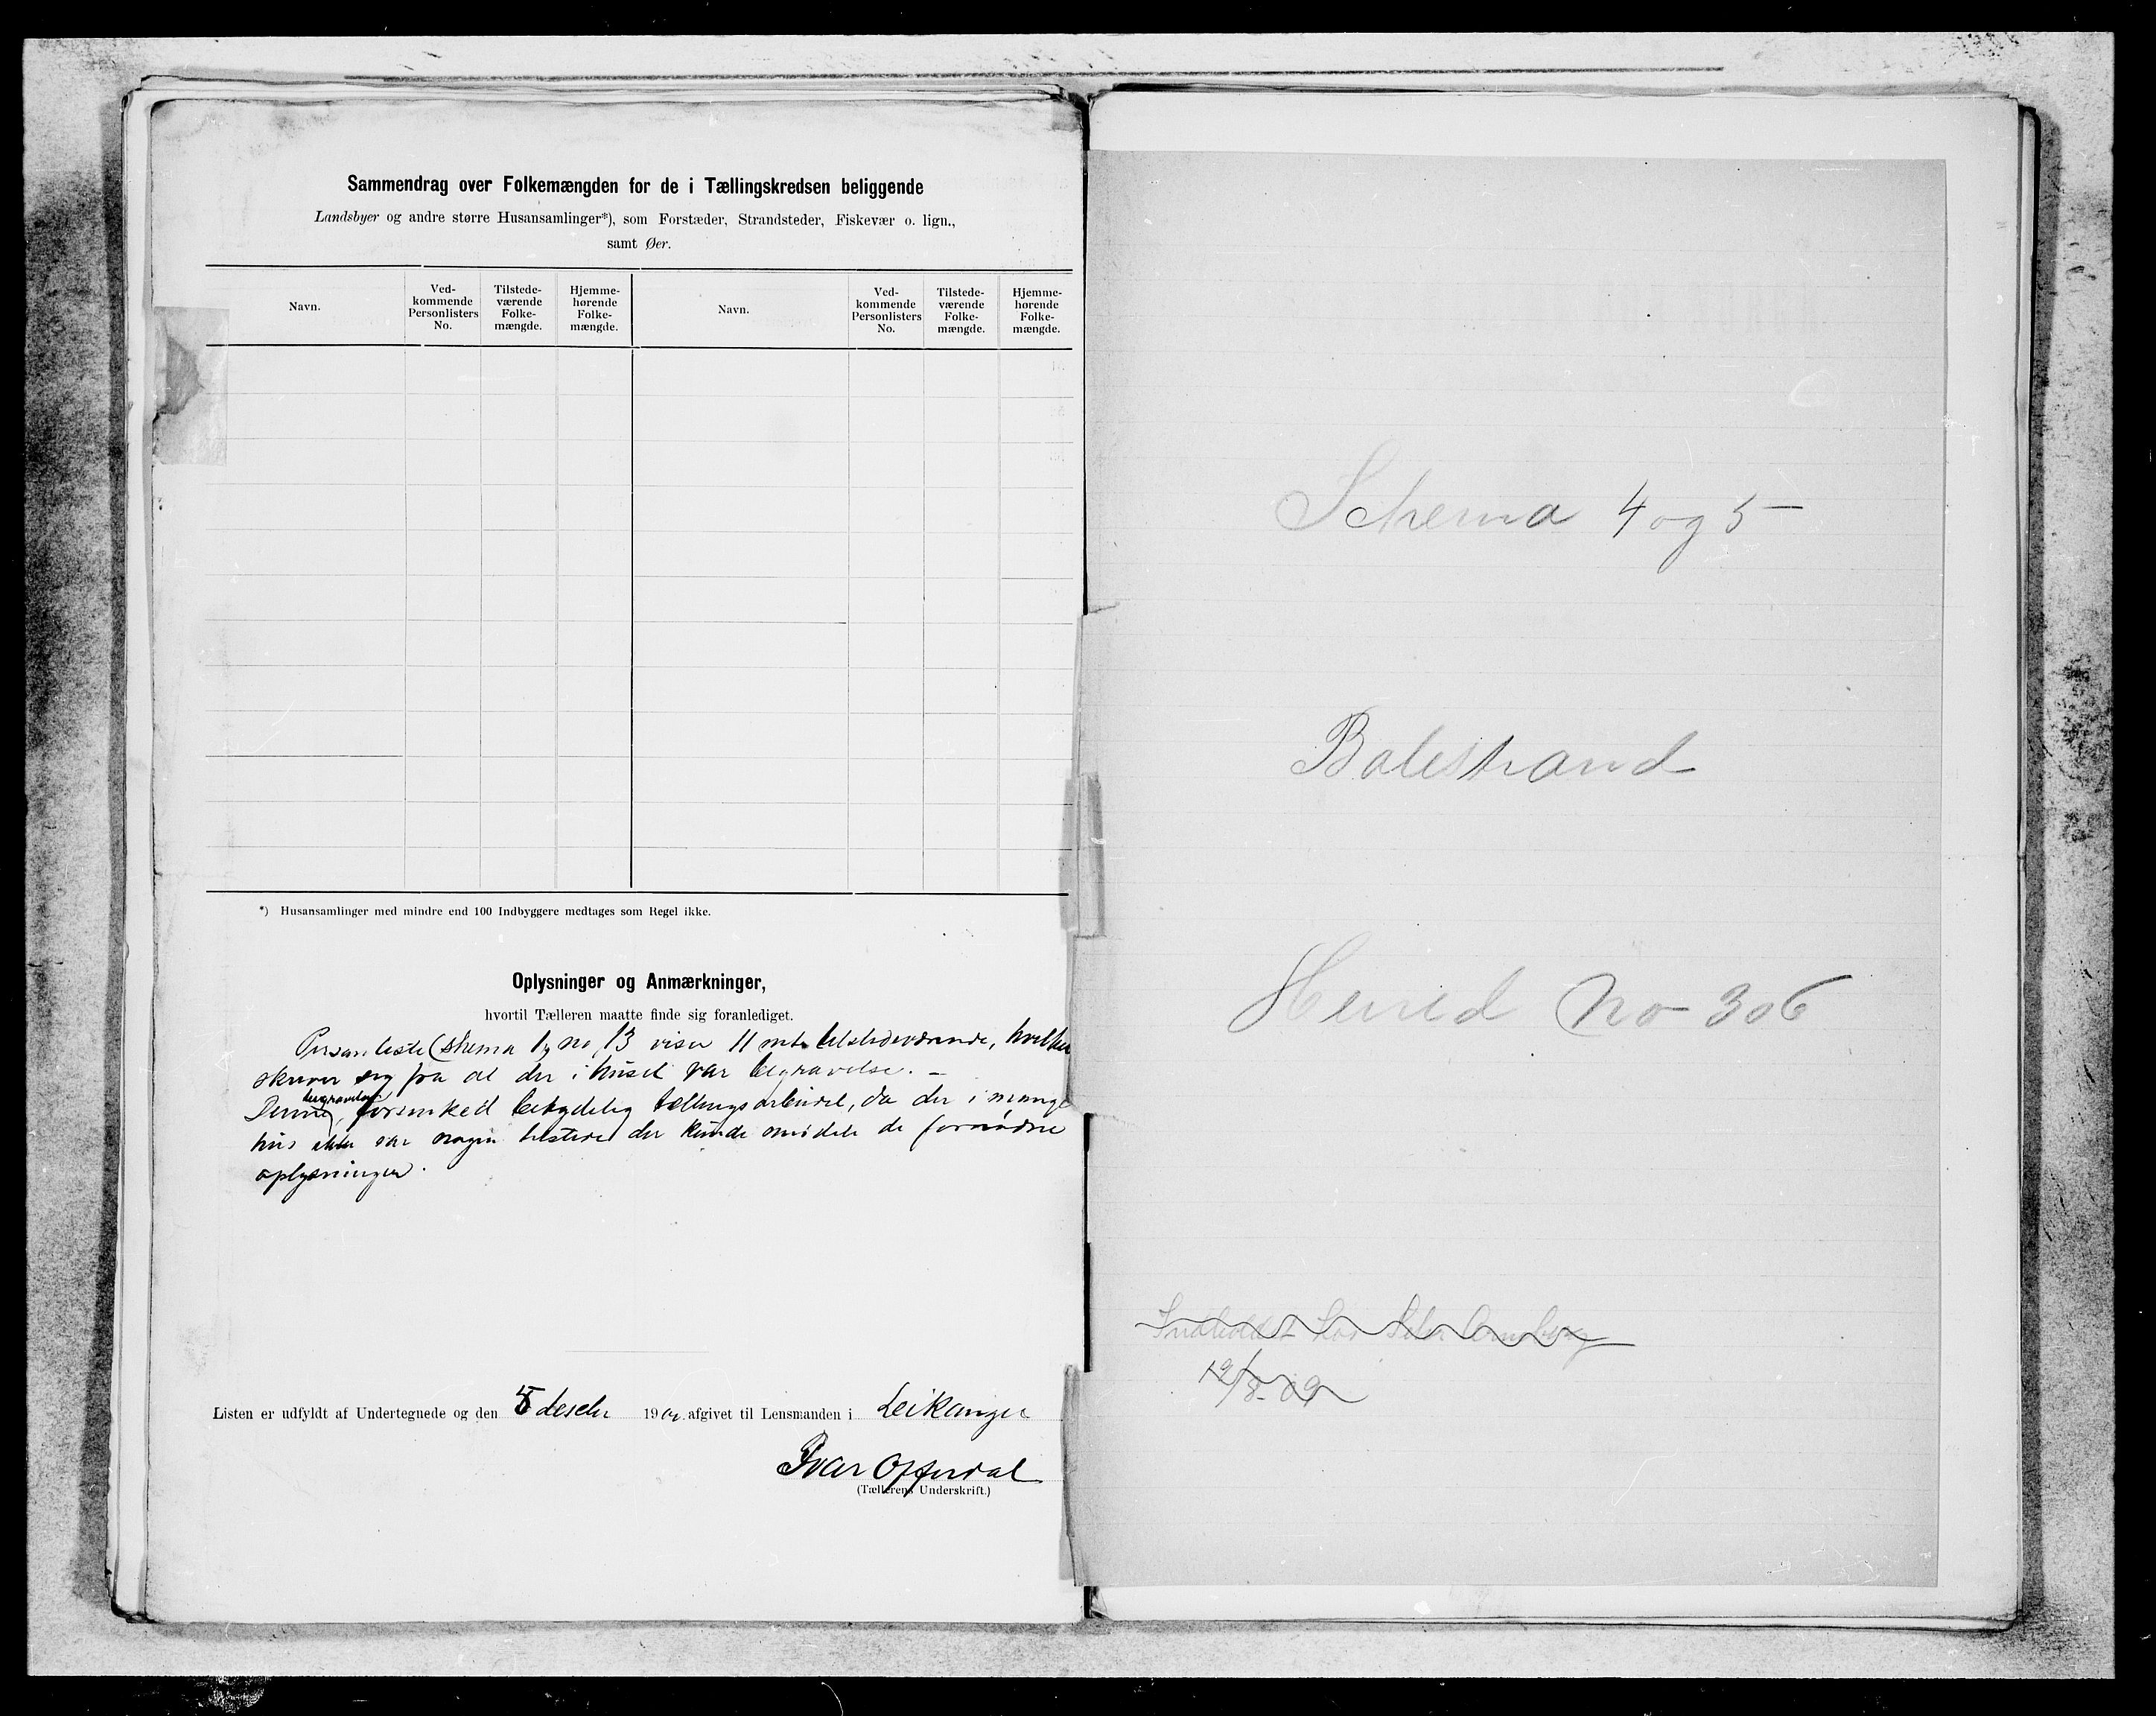 Sammendrag over Folkemængden for de i Tællingskredsen beliggende
Landsbyer og andre større Husansamlinger*), som Forstæder, Strandsteder, Fiskevær o. lign.,
samt Øer.
Navn.
Ved-
kommende
Personlisters
No.
Tilstede-
værende
Folke-
mængde.
Hjemme-
hørende
Folke-
mængde.
Navn.
Ved-
kommende
Personlisters
No.
Tilstede-
værende
Folke-
mængde.
Hjemme-
hørende
Folke-
mængde.
*) Husansamlinger med mindre end 100 Indbyggere medtages som Regel ikke.
Oplysninger og Anmærkninger,
hvortil Tælleren maatte finde sig foranlediget.
Personliste (skema 1, no 13 viser 11 mdt. tilstedeværende, hvilket
skriver sig fra at der i huset var begravelse. –
begravelse
Denne, forsinked betydelig tellingsarbeidet, da der i mange
hus ikke var nogen tilstede der kunde meddele de fornødne
oplysninger.
Listen er udfyldt af Undertegnede og den 5 desebr 1900 afgivet til Lensmanden i Leikanger
Ivar Offerdal
(Tællerens Underskrift.)
Schema 4 og 5
Balestrand
Herred No 306
12/8-09